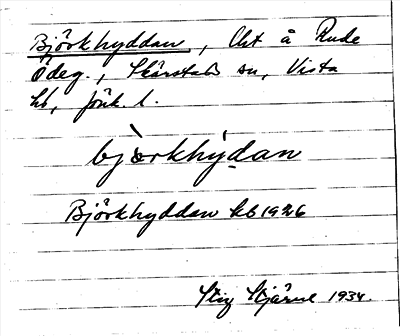 Björkhyddan, Lht å Rude
Ödeg., Skärstads sn, Vista
hd, Jönk. l.
bjò̀rkhỳdan
Björkhyddan kb 1926
Stig Stjärne 1934.